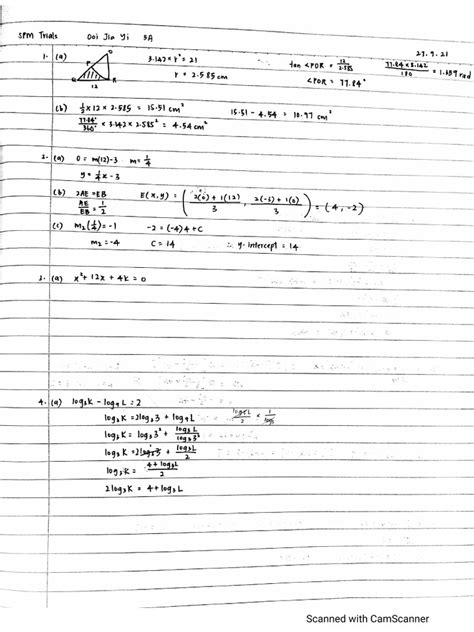 SPM Trials Ooi Jia Yi 5A
27.9.21
1. (a) O P Q R 12
3.142 × r² = 21
r = 2.585 cm
tan <POR = 12/2.585
<POR = 77.84°
77.84 × 3.142 / 180 = 1.359 rad
(b) 1/2 × 12 × 2.585 = 15.51 cm²
15.51 - 4.54 = 10.97 cm²
77.84°/360° × 3.142 × 2.585² = 4.54 cm²
2. (a) 0 = m(12)-3 m = 1/4
y = 1/4 x - 3
(b) 2AE = EB
AE/EB = 1/2
E(x,y) = ( 2(0) + 1(12) / 3 , 2(-3) + 1(0) / 3 ) = (4, -2)
(c) m₂(1/4) = -1 -2 = (-4)4 + C
m₂ = -4 C = 14 ∴ y-intercept = 14
3. (a) x² + 12x + 4k = 0
4. (a) log₃K - log₉L = 2
log₃K = 2log₃3 + log₉L
log₃K = log₃3² + log₃L / log₃3²
log₃K = 2log₃3 + log₃L / 2
log₃K = 4 + log₃L / 2
2log₃K = 4 + log₃L
Scanned with CamScanner